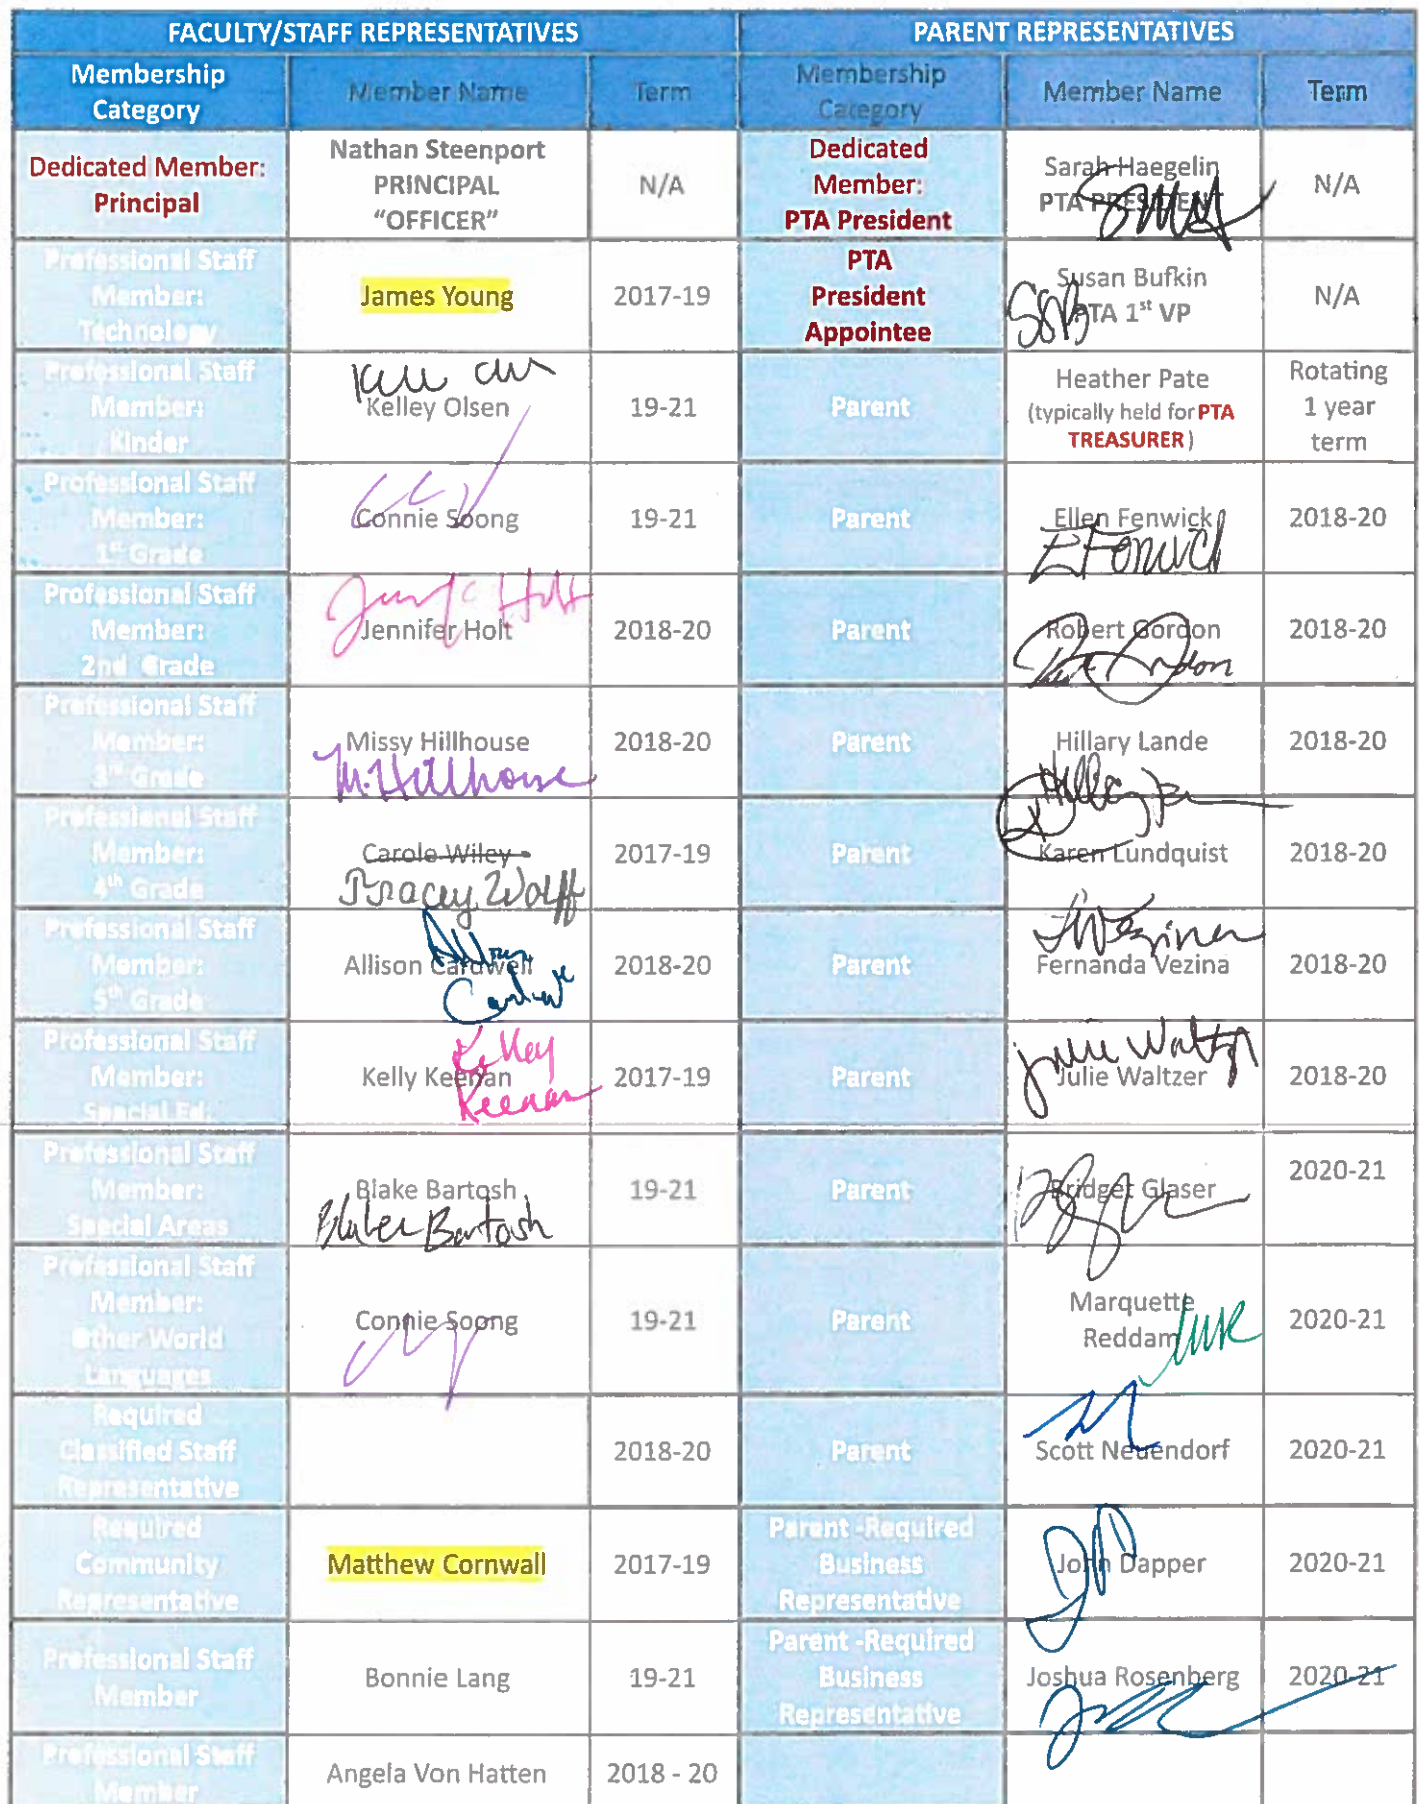 FACULTY/STAFF REPRESENTATIVES PARENT REPRESENTATIVES
Membership Category Member Name Term Membership Category Member Name Term
Dedicated Member: Principal Nathan Steenport PRINCIPAL "OFFICER" N/A Dedicated Member: PTA President Sarah Haegelin PTA PRESIDENT N/A
Professional Staff Member: Technology James Young 2017-19 PTA President Appointee Susan Bufkin PTA 1st VP N/A
SSB
Professional Staff Member: Kinder Kelley Olsen 19-21 Parent Heather Pate (typically held for PTA TREASURER) Rotating 1 year term
Professional Staff Member: 1st Grade Connie Soong 19-21 Parent Ellen Fenwick 2018-20
E Fenwick
Professional Staff Member: 2nd Grade Jennifer Holt 2018-20 Parent Robert Gordon 2018-20
Professional Staff Member: 3rd Grade Missy Hillhouse 2018-20 Parent Hillary Lande 2018-20
M. Hillhouse
Professional Staff Member: 4th Grade Carole Wiley 2017-19 Parent Karen Lundquist 2018-20
Tracey Wolff
Professional Staff Member: 5th Grade Allison Cardwell 2018-20 Parent Fernanda Vezina 2018-20
Professional Staff Member: Special Ed. Kelly Keenan 2017-19 Parent Julie Waltzer 2018-20
Kelley Keenan
Professional Staff Member: Special Areas Blake Bartosh 19-21 Parent Bridget Glaser 2020-21
Blake Bartosh
Professional Staff Member: Other World Languages Connie Soong 19-21 Parent Marquette Reddam 2020-21
Required Classified Staff Representative 2018-20 Parent Scott Neuendorf 2020-21
Required Community Representative Matthew Cornwall 2017-19 Parent -Required Business Representative John Dapper 2020-21
Professional Staff Member Bonnie Lang 19-21 Parent -Required Business Representative Joshua Rosenberg 2020-21
Professional Staff Member Angela Von Hatten 2018 - 20